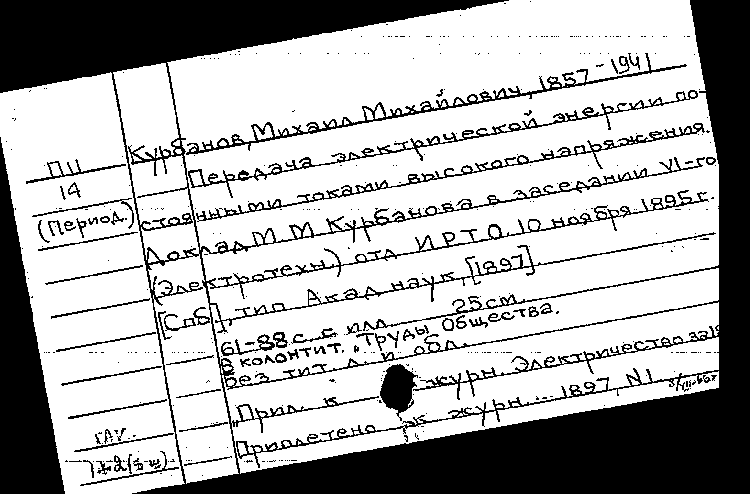 Курбанов, Михаил Михайлович, 1857-1941
П11
14
(Период.)
Передача электрической энергии по-
стоянными токами высокого напряжения.
Доклад М. М. Курбанова в заседании VI-го
(Электротехн.) отд И.Р.Т.О. 10 ноября 1895 г.
[Спб], тип Акад наук, [1897].
61-88 с. с илл. 25 см.
В колонтит. "Труды Общества.
Без тит. л. и обл.
"Прил. к журн. Электричество за 18
Приплетено к журн... 1897, N1